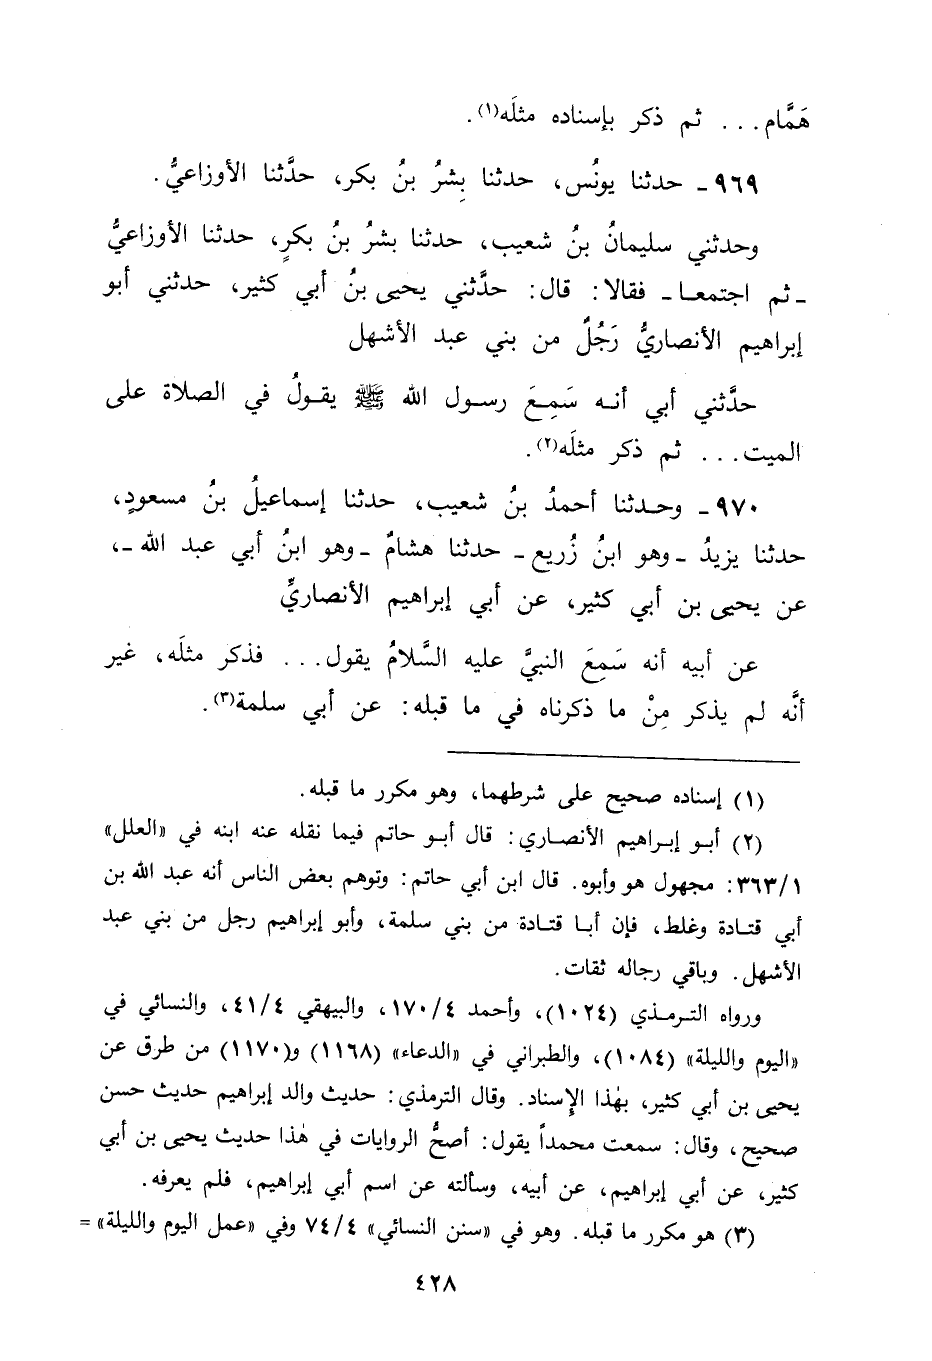 هَمَّام... ثم ذكر بإسناده مثلَه(١).
٩٦٩ـ حدثنا يونُس، حدثنا بِشرُ بنُ بكر، حدَّثنا الأوزاعيُّ.
وحدثني سليمانُ بنُ شعيب، حدثنا بشرُ بنُ بكرٍ، حدثنا الأوزاعيُّ
ـ ثم اجتمعا ـ فقالا: قال: حدَّثني يحيى بنُ أبي كثير، حدثني أبو
إبراهيم الأنصاريُّ رَجُلٌ من بني عبد الأشهل
حدَّثني أبي أنه سَمِعَ رسول الله ﷺ يقولُ في الصلاة على
الميت... ثم ذكر مثلَه(٢).
٩٧٠ـ وحدثنا أحمدُ بنُ شعيب، حدثنا إسماعيلُ بنُ مسعودٍ،
حدثنا يزيدُ ـ وهو ابنُ زُريع ـ حدثنا هشامٌ ـ وهو ابنُ أبي عبد الله ـ،
عن يحيى بن أبي كثير، عن أبي إبراهيم الأنصاريِّ
عن أبيه أنه سَمِعَ النبيَّ عليه السَّلامُ يقول... فذكر مثلَه، غير
أنَّه لم يذكر مِنْ ما ذكرناه في ما قبله: عن أبي سلمة(٣).
(١) إسناده صحيح على شرطهما، وهو مكرر ما قبله.
(٢) أبو إبراهيم الأنصاري: قال أبو حاتم فيما نقله عنه ابنه في «العلل»
٣٦٣/١: مجهول هو وأبوه. قال ابن أبي حاتم: وتوهم بعض الناس أنه عبد الله بن
أبي قتادة وغلط، فإن أبا قتادة من بني سلمة، وأبو إبراهيم رجل من بني عبد
الأشهل. وباقي رجاله ثقات.
ورواه الترمذي (١٠٢٤)، وأحمد ١٧٠/٤، والبيهقي ٤١/٤، والنسائي في
«اليوم والليلة» (١٠٨٤)، والطبراني في «الدعاء» (١١٦٨) و(١١٧٠) من طرق عن
يحيى بن أبي كثير، بهٰذا الإسناد. وقال الترمذي: حديث والد إبراهيم حديث حسن
صحيح، وقال: سمعت محمداً يقول: أصحُّ الروايات في هٰذا حديث يحيى بن أبي
كثير، عن أبي إبراهيم، عن أبيه، وسألته عن اسم أبي إبراهيم، فلم يعرفه.
(٣) هو مكرر ما قبله. وهو في «سنن النسائي» ٧٤/٤ وفي «عمل اليوم والليلة» =
٤٢٨